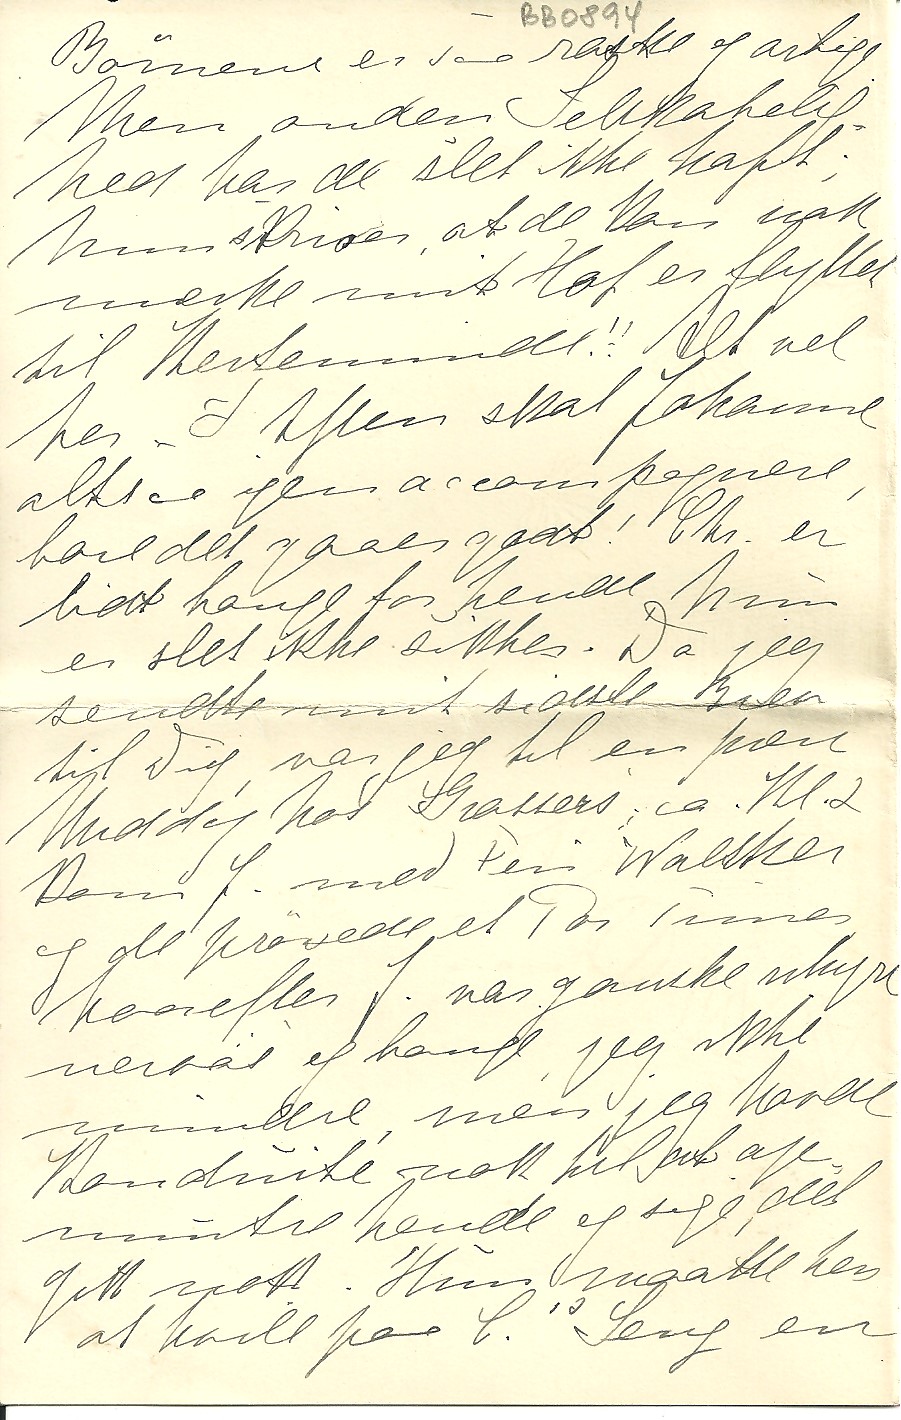 BB0894
Börnene er saa raske og artige
Men anden Selskabelig-
hed har de slet ikke haft;
hun skriver, at de kan nok
mærke mit Hof er flyttet
til Kerteminde!! Alt vel
her - I Aften skal Johanne
altsaa igen accompagnere,
bare det gaaer godt! Chr. er
lidt bange for hende, hun
er slet ikke sikker. Da jeg
sendte mit sidste Brev
til Dig, var jeg til en pæn
Middag hos Grassers; ca. Kl. 2
kom J. med Frøi Walsker
og de prövede et Par Timer
hvorefter J. var ganske uhyre
nervös og bange, jeg ikke
mindre, men jeg havde
Konduite nok til at op-
muntre hende og sige, det
gik nok. Hun maatte hen
at hvile paa C.'s Seng en